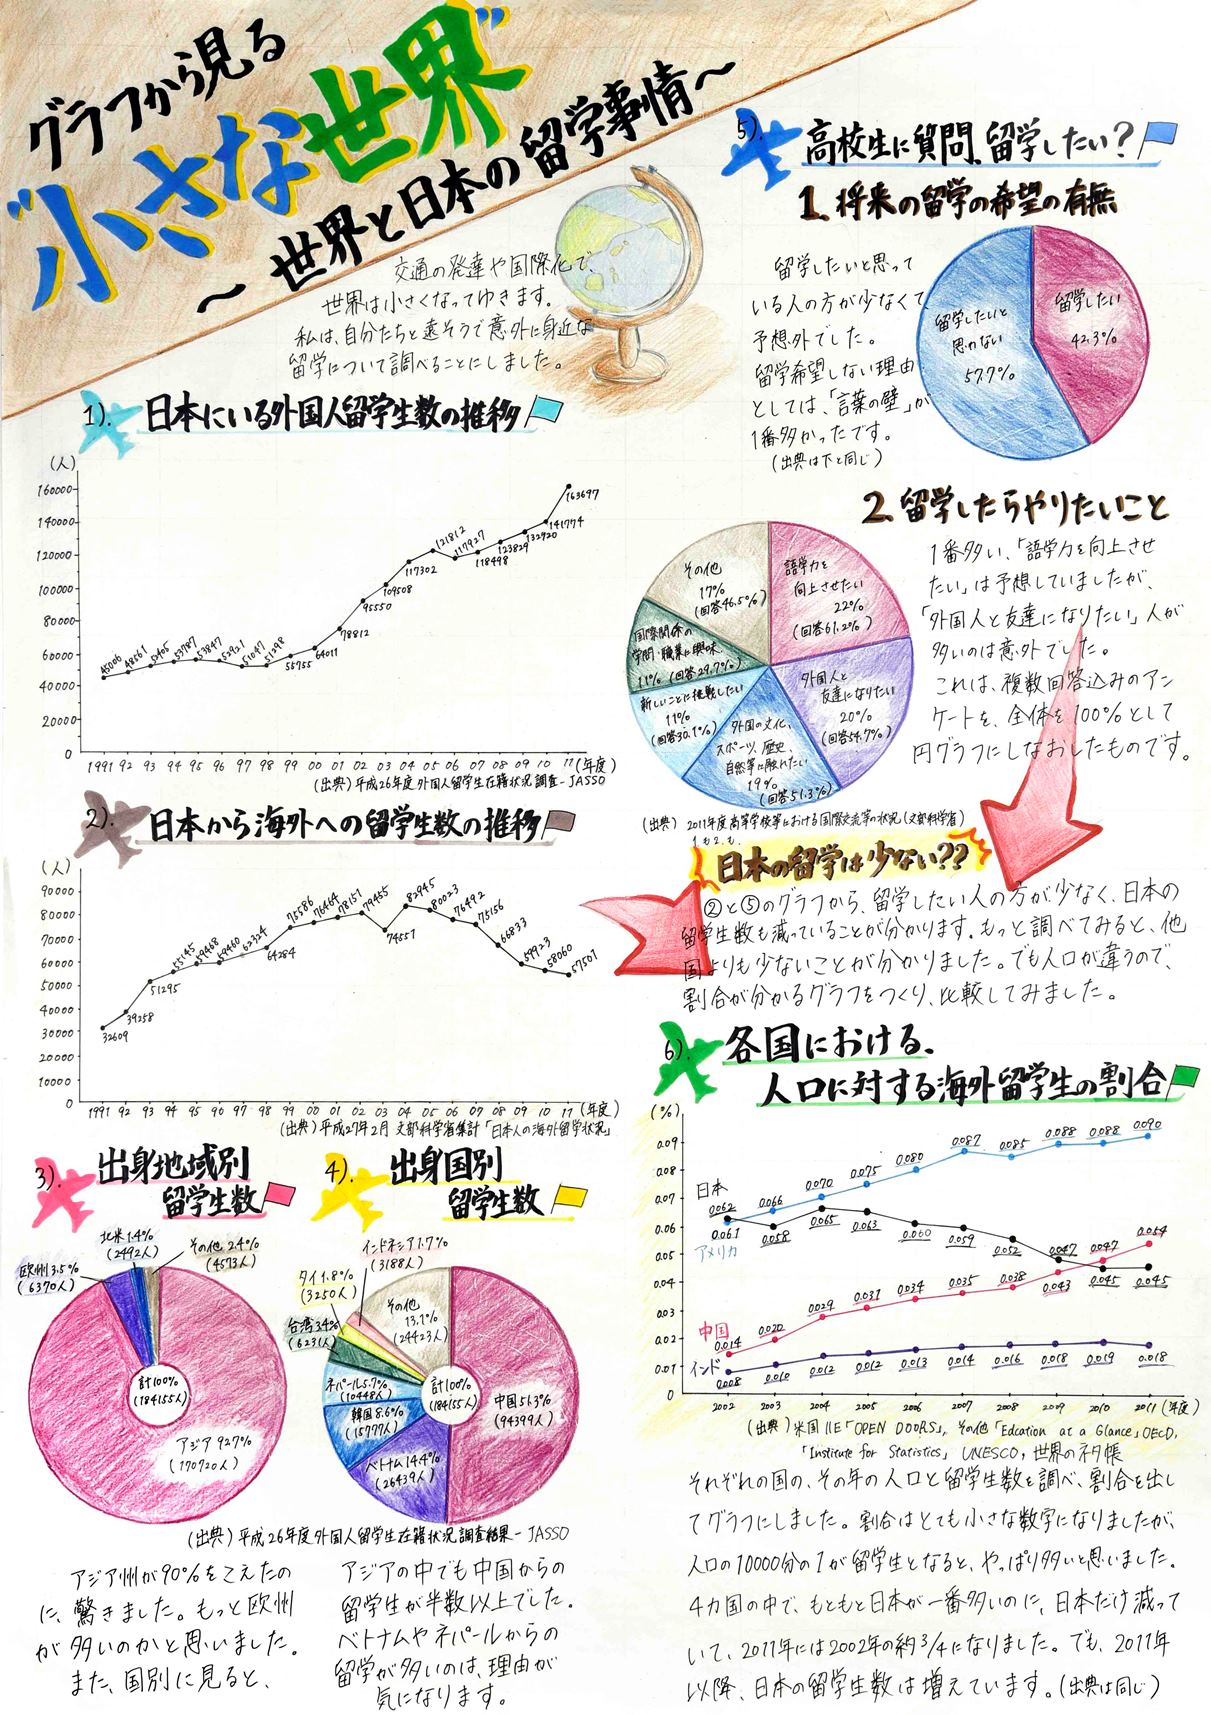 グラフから見る
"小さな世界"
～世界と日本の留学事情～
交通の発達や国際化で、
世界は小さくなってゆきます。
私は、自分たちと遠そうで意外に身近な
留学について調べることにしました。
1). 日本にいる外国人留学生数の推移
(人)
160000
140000
120000
100000
80000
60000
40000
20000
0
45066 48561 52405 53787 53847 52921 51047 51298 55755 64011 78812 95550 109508 117302 121812 117927 118498 123829 132720 141774 163697
1991 92 93 94 95 96 97 98 99 00 01 02 03 04 05 06 07 08 09 10 11 (年度)
(出典) 平成26年度外国人留学生在籍状況調査-JASSO
2). 日本から海外への留学生数の推移
(人)
90000
80000
70000
60000
50000
40000
30000
20000
10000
0
32609 39258 51295 55145 59468 59460 62324 64284 75586 76464 78151 79455 74551 82945 80023 76492 75156 66833 59923 58060 57501
1991 92 93 94 95 96 97 98 99 00 01 02 03 04 05 06 07 08 09 10 11 (年度)
(出典) 平成27年2月 文部科学省集計「日本人の海外留学状況」
3). 出身地域別
留学生数
北米1.4%
(2492人)
その他 2.4%
(4573人)
欧州3.5%
(6370人)
計100%
(184155人)
アジア 92.7%
(170720人)
4). 出身国別
留学生数
インドネシア1.7%
(3188人)
タイ1.8%
(3250人)
台湾3.4%
(6231人)
その他
13.1%
(24423人)
ネパール5.7%
(10448人)
計100%
(184155人)
中国51.3%
(94399人)
韓国8.6%
(15777人)
ベトナム14.4%
(26439人)
(出典) 平成26年度外国人留学生在籍状況調査結果-JASSO
アジア州が90%をこえたの
に、驚きました。もっと欧州
が多いのかと思いました。
また、国別に見ると、
アジアの中でも中国からの
留学生が半数以上でした。
ベトナムやネパールからの
留学が多いのは、理由が
気になります。
5). 高校生に質問、留学したい?
1. 将来の留学の希望の有無
留学したいと思って
いる人の方が少なくて
予想外でした。
留学希望しない理由
としては、「言葉の壁」が
1番多かったです。
(出典は下と同じ)
留学したいと
思わない
57.7%
留学したい
42.3%
2. 留学したらやりたいこと
その他
17%
(回答46.5%)
語学力を
向上させたい
22%
(回答61.2%)
国際関係の
学問・職業に興味
11% (回答29.7%)
外国人と
友達になりたい
20%
(回答54.7%)
新しいことに挑戦したい
11%
(回答30.1%)
外国の文化、
スポーツ、歴史、
自然等に触れたい
19%
(回答51.3%)
1番多い、「語学力を向上させ
たい」は予想していましたが、
「外国人と友達になりたい」人が
多いのは意外でした。
これは、複数回答込みのアン
ケートを、全体を100%として
円グラフにしなおしたものです。
(出典) 2011年度高等学校等における国際交流等の状況(文部科学省)
1.も2.も.
日本の留学は少ない??
②と⑤のグラフから、留学したい人の方が少なく、日本の
留学生数も減っていることが分かります。もっと調べてみると、他
国よりも少ないことが分かりました。でも人口が違うので、
割合が分かるグラフをつくり、比較してみました。
6). 各国における、
人口に対する海外留学生の割合
(%)
0.09
0.08
0.07
0.06
0.05
0.04
0.03
0.02
0.01
0
0.061 0.066 0.070 0.075 0.080 0.087 0.085 0.088 0.088 0.090
日本
0.062 0.058 0.065 0.063 0.060 0.059 0.052 0.047 0.045 0.045
アメリカ
中国
0.014 0.020 0.029 0.031 0.034 0.035 0.038 0.043 0.047 0.054
インド
0.008 0.010 0.012 0.012 0.013 0.014 0.016 0.018 0.019 0.018
2002 2003 2004 2005 2006 2007 2008 2009 2010 2011 (年度)
(出典) 米国IIE「OPEN DOORS」、その他「Edcation at a Glance」OECD,
「Institute for Statistics」 UNESCO, 世界のネタ帳
それぞれの国の、その年の人口と留学生数を調べ、割合を出し
てグラフにしました。割合はとても小さな数字になりましたが、
人口の10000分の1が留学生となると、やっぱり多いと思いました。
4カ国の中で、もともと日本が一番多いのに、日本だけ減って
いて、2011年には2002年の約3/4になりました。でも、2011年
以降、日本の留学生数は増えています。(出典は同じ)